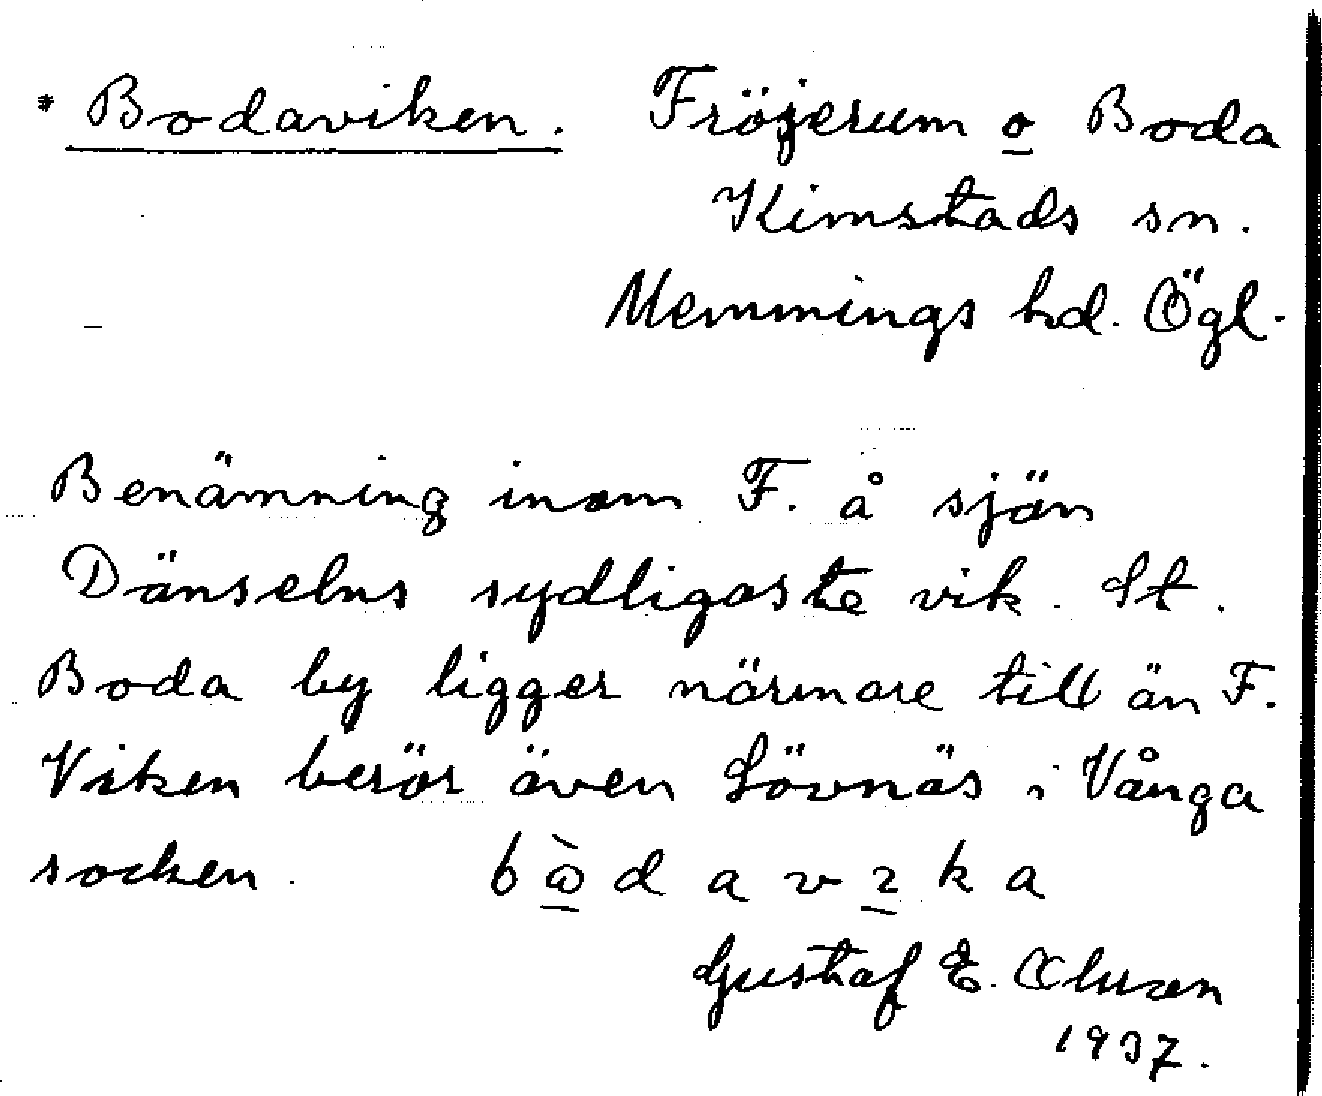 * Bodaviken. Fröjerum o Boda
Kimstads sn.
Memmings hd. Ögl.
Benämning inom F. å sjön
Dänselns sydligaste vik. St.
Boda by ligger närmare till än F.
Viken berör även Lövnäs i Vånga
socken. bὼdavɿka
Gustaf E. Olsson
1937.